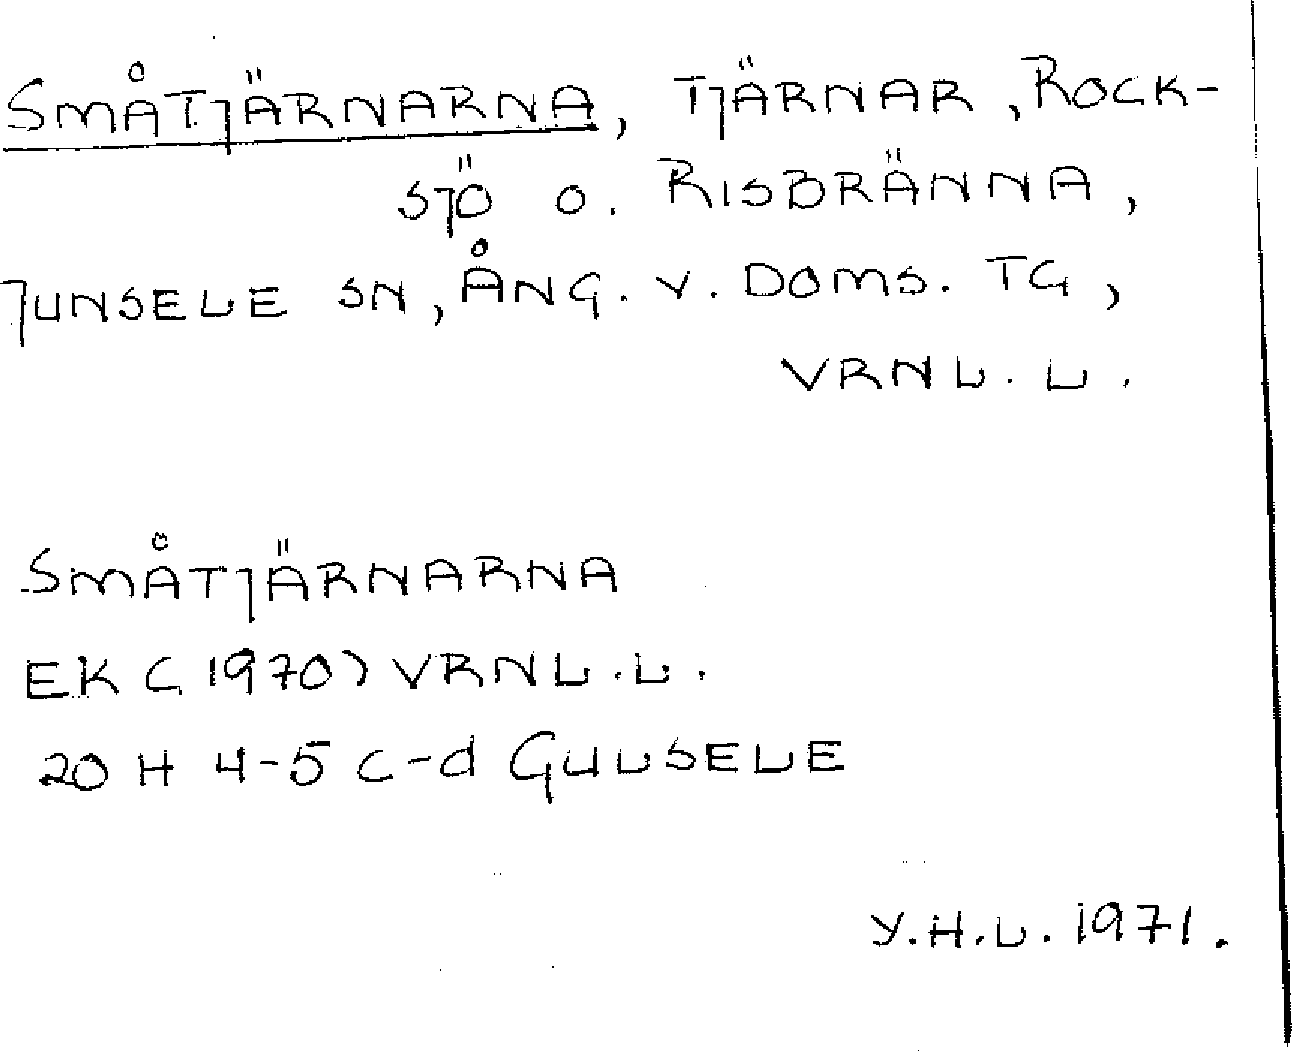 SMÅTJÄRNARNA, TJÄRNAR, ROCK-
SJÖ O. RISBRÄNNA,
JUNSELE SN, ÅNG. V. DOMS. TG,
VRNL. L.
SMÅTJÄRNARNA
EK (1970) VRNL.L.
20 H 4-5 c-d GULSELE
Y.H.L. 1971.